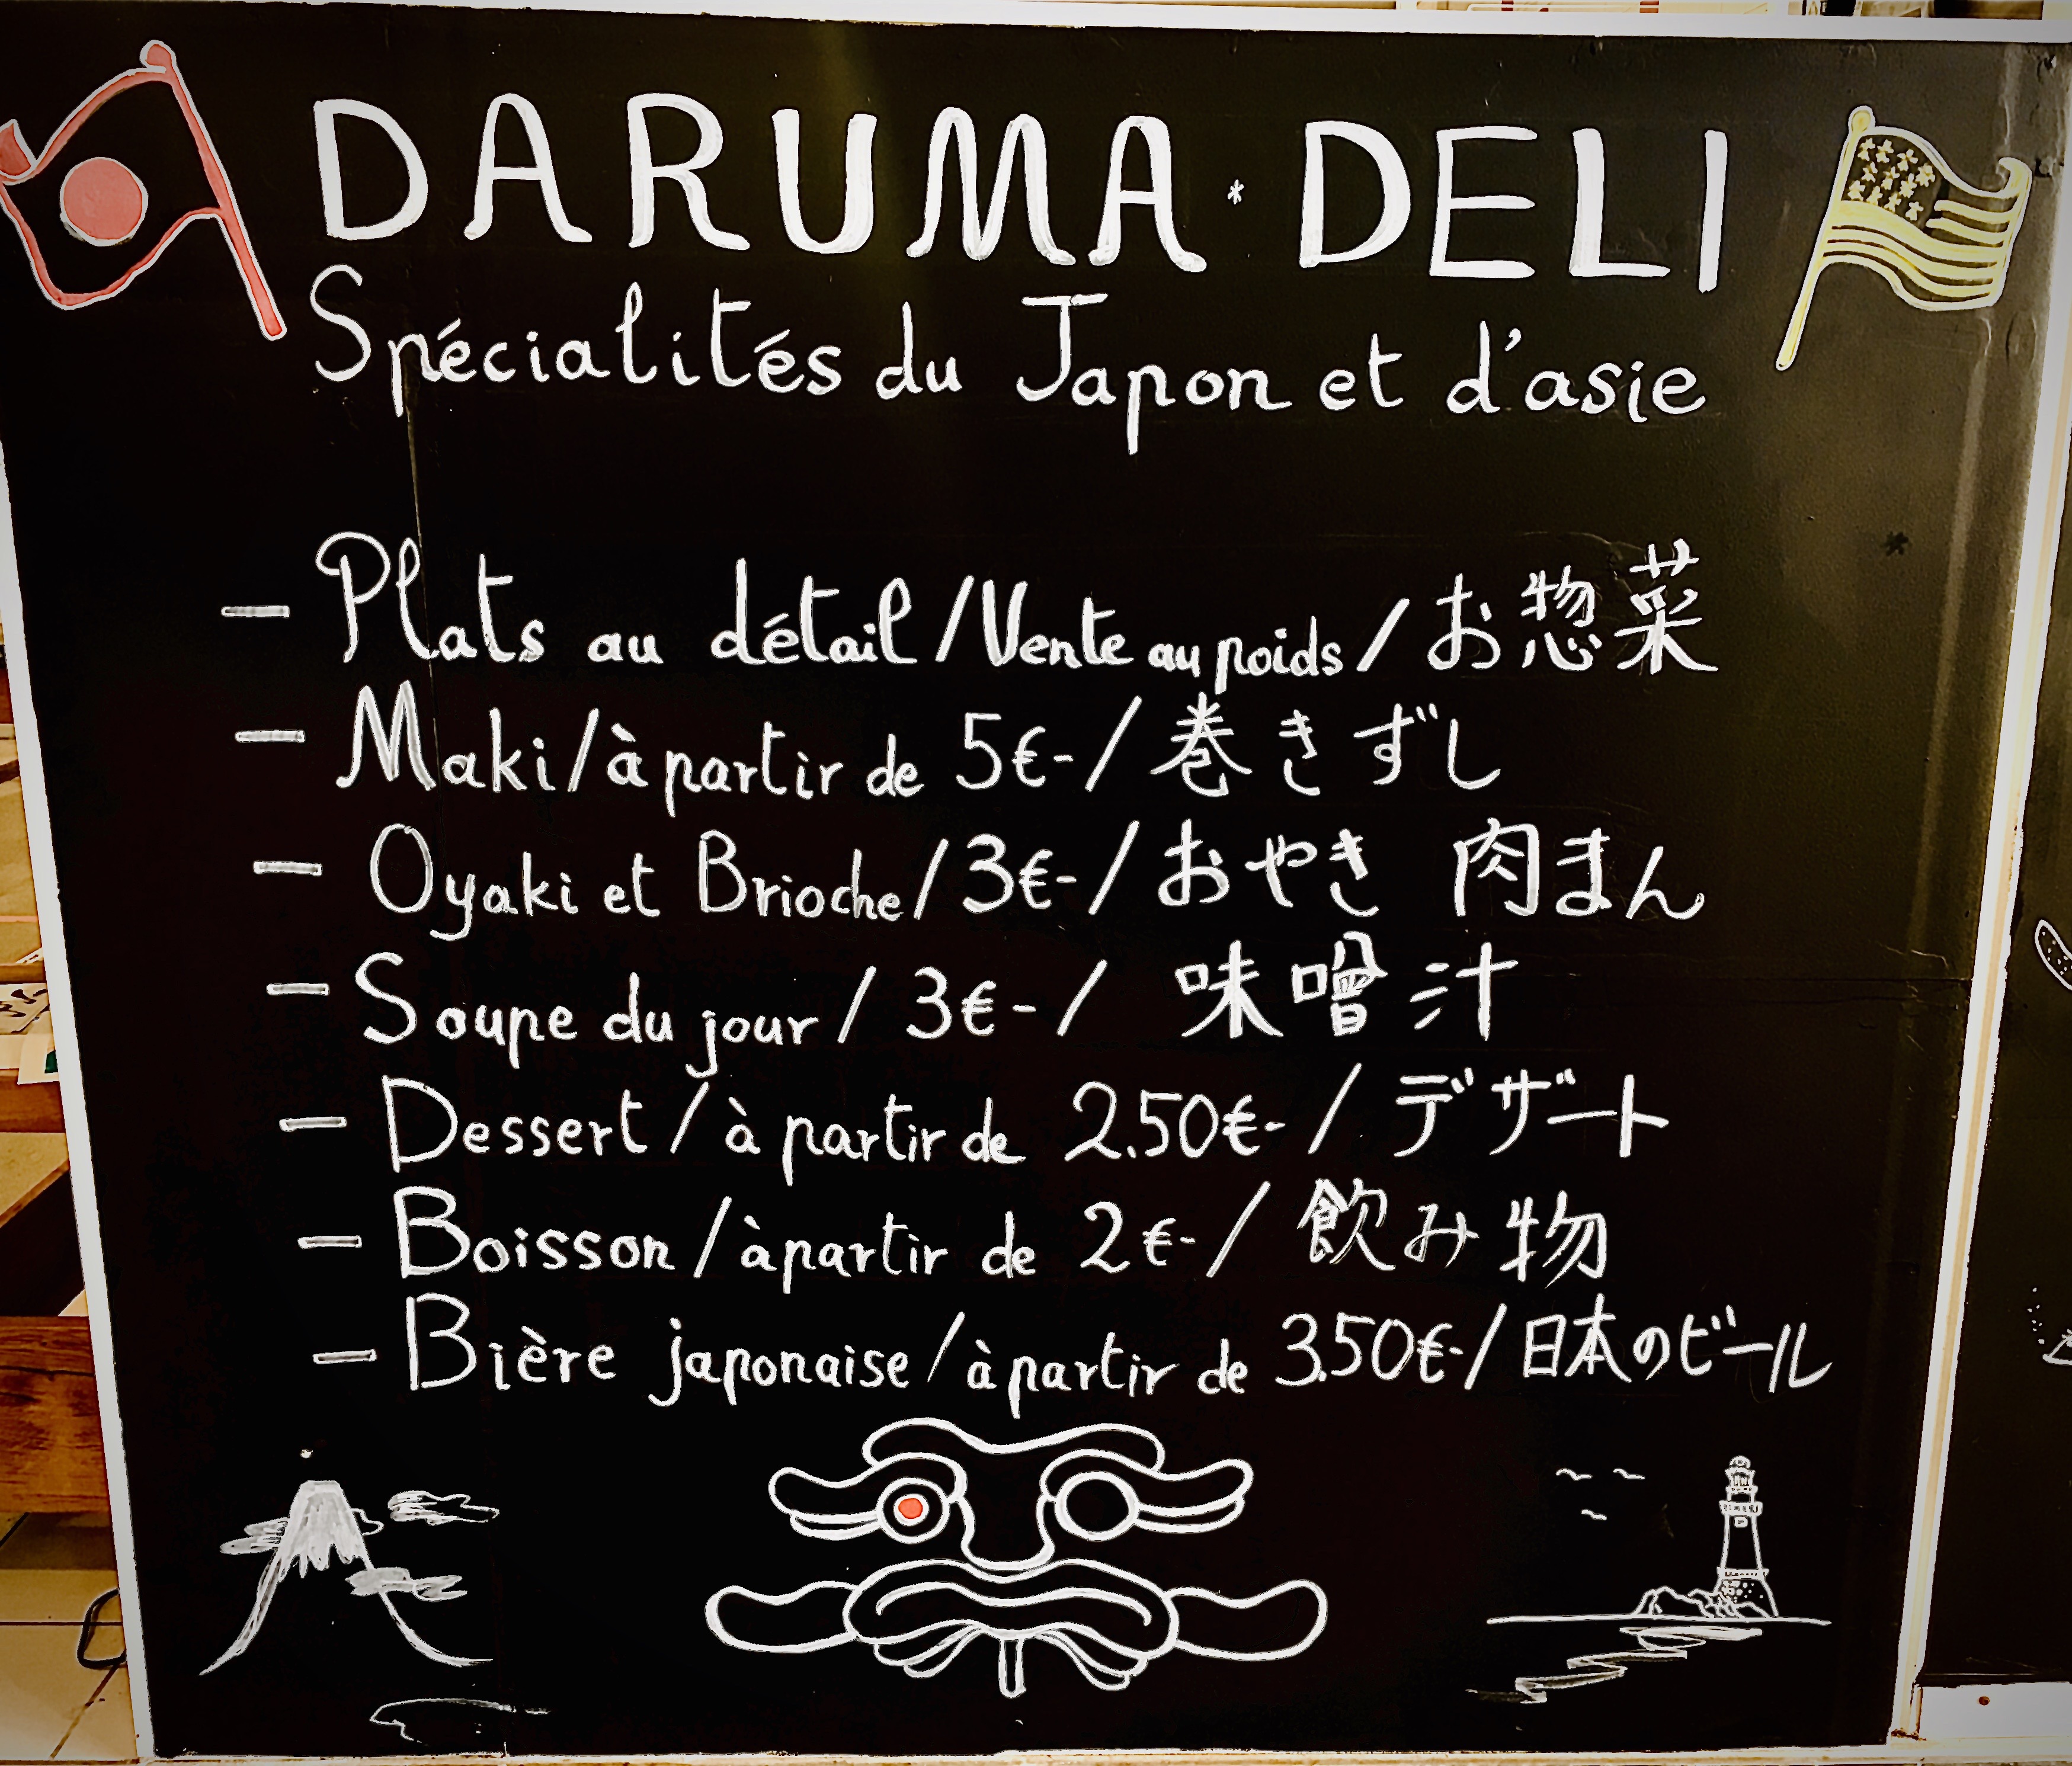 DARUMA * DELI
Spécialités du Japon et d'asie
- Plats au détail / Vente au poids / お惣菜
- Maki / à partir de 5€- / 巻きずし
- Oyaki et Brioche / 3€- / おやき 肉まん
- Soupe du jour / 3€- / 味噌汁
- Dessert / à partir de 2.50€- / デザート
- Boisson / à partir de 2€- / 飲み物
- Bière japonaise / à partir de 3.50€- / 日本のビール